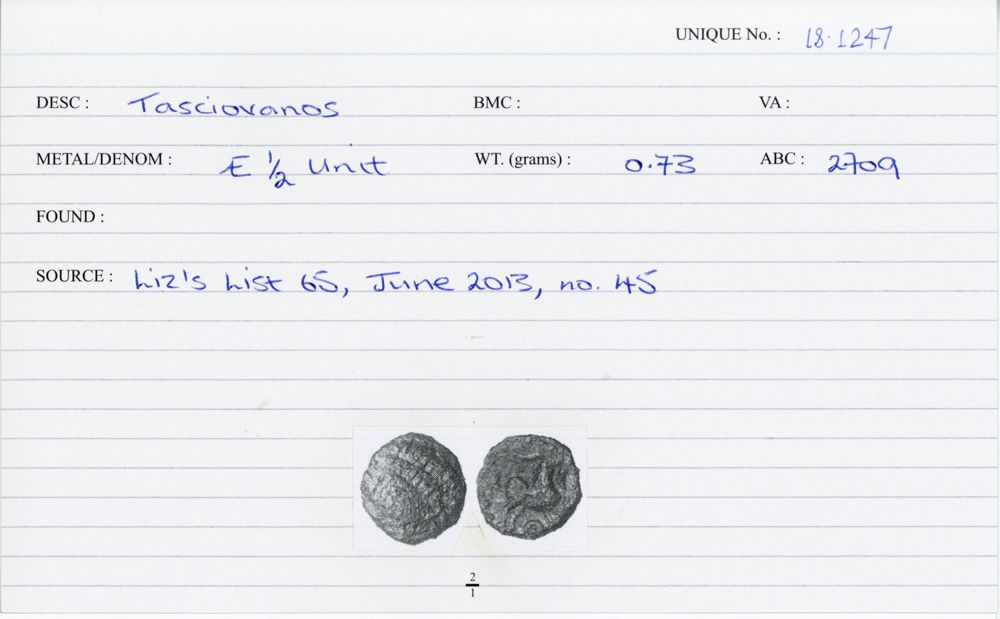 UNIQUE No. : 18.1247
DESC : Tasciovanos BMC : VA :
METAL/DENOM : Æ ½ Unit WT. (grams) : 0.73 ABC : 2709
FOUND :
SOURCE : Liz's List 65, June 2013, no. 45
2
1